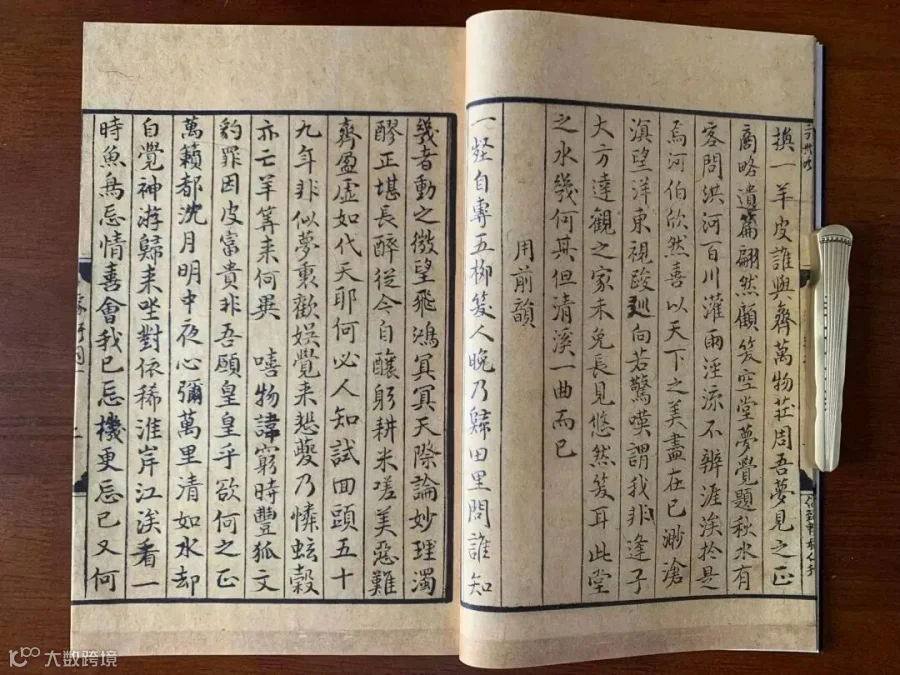 換一羊皮誰與齊萬物莊周吾夢見之正
商略遺篇翩然顧笑空堂夢覺題秋水有
客問洪河百川灌雨涇流不辨涯涘於是
焉河伯欣然喜以天下之美盡在已渺滄
溟望洋東視逡巡向若驚嘆謂我非逢子
大方達觀之家未免長見悠然笑耳此堂
之水幾何其但清溪一曲而已
用前韻
一壑自專五柳笑人晚乃歸田里問誰知
幾者動之微望飛鴻冥冥天際論妙理濁
醪正堪長醉從今自釀躬耕米嗟美惡難
齊盈虛如代天耶何必人知試囬頭五十
九年非似夢裏歡娛覺来悲夔乃憐蚿穀
亦亡羊筭来何異 嘻物諱窮時豐狐文
豹罪因皮富貴非吾願皇皇乎欲何之正
萬籟都沉月明中夜心彌萬里清如水却
自覺神游歸来坐對依稀淮岸江涘看一
時魚鳥忘情喜會我已忘機更忘已又何
大数跨境